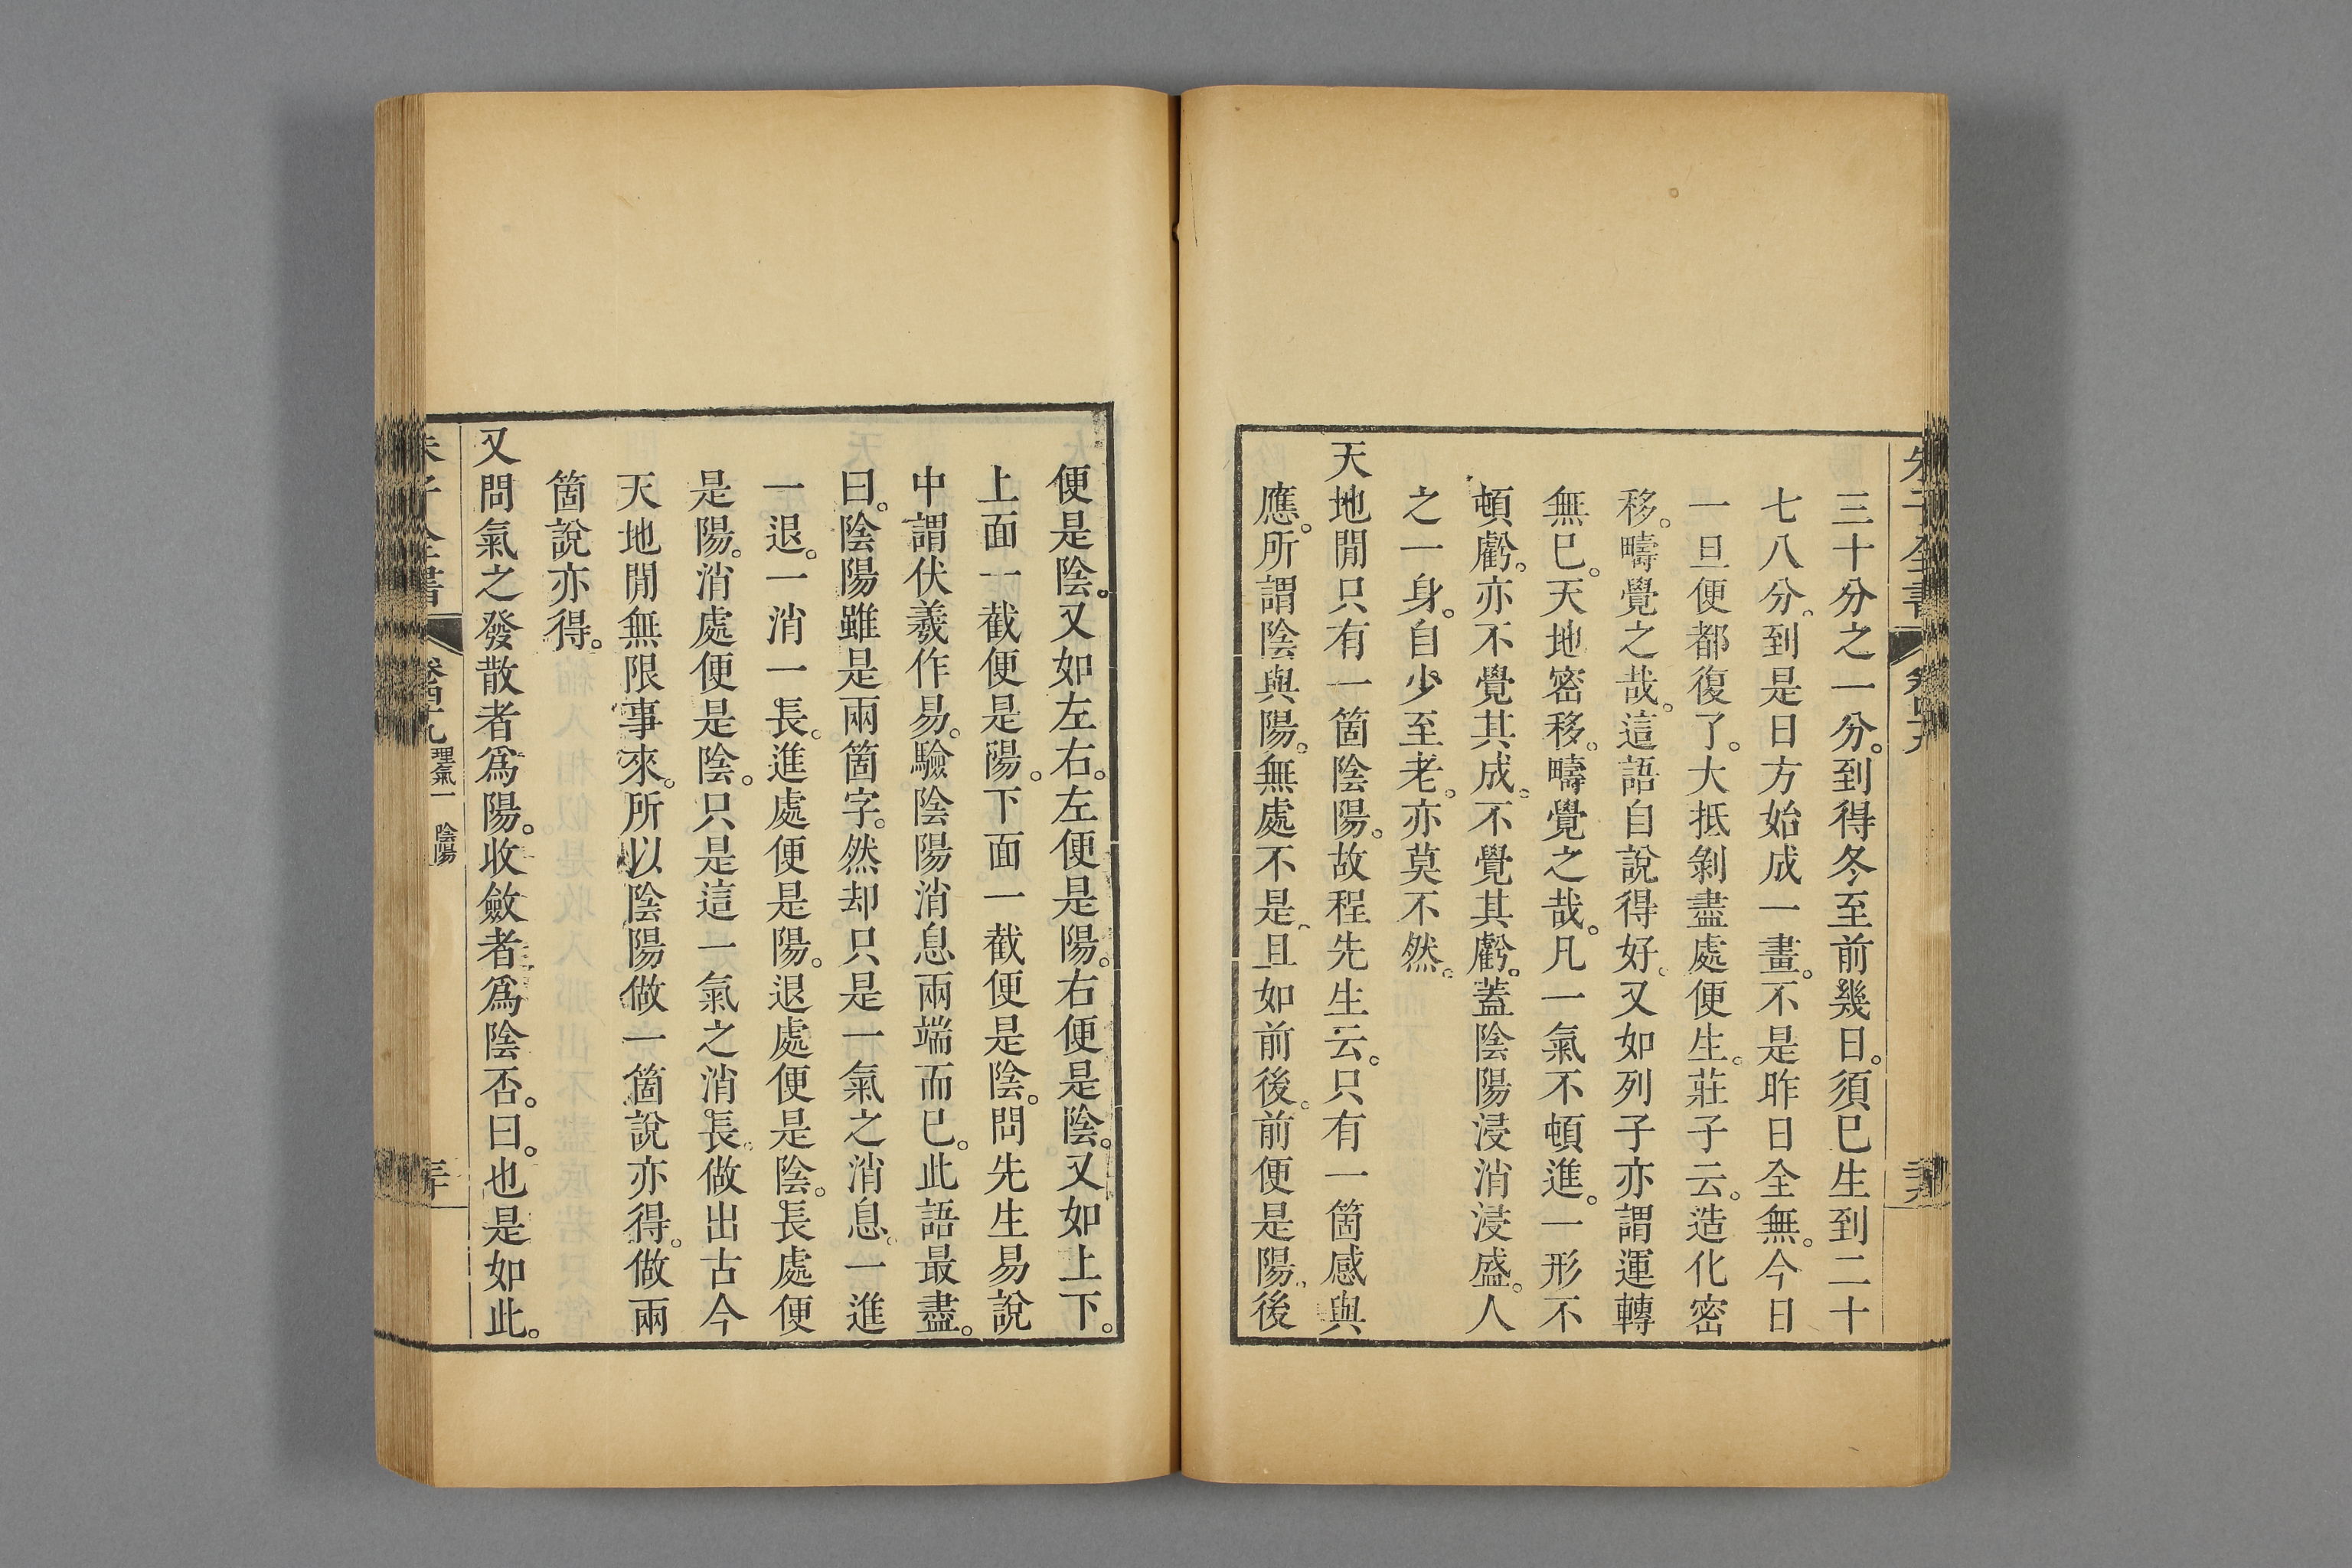 朱子全書 卷四十九
三十分之一分。到得冬至前幾日。須巳生到二十
七八分。到是日方始成一畫。不是昨日全無。今日
一旦便都復了。大抵剝盡處便生。莊子云。造化密
移。疇覺之哉。這語自說得好。又如列子亦謂運轉
無巳。天地密移。疇覺之哉。凡一氣不頓進。一形不
頓虧。亦不覺其成。不覺其虧。蓋陰陽浸消浸盛。人
之一身。自少至老。亦莫不然。
天地閒只有一箇陰陽。故程先生云。只有一箇感與
應。所謂陰與陽。無處不是。且如前後。前便是陽。後
便是陰。又如左右。左便是陽。右便是陰。又如上下。
上面一截便是陽。下面一截便是陰。問先生易說
中謂伏羲作易。驗陰陽消息兩端而巳。此語最盡。
曰。陰陽雖是兩箇字。然却只是一氣之消息。一進
一退。一消一長。進處便是陽。退處便是陰。長處便
是陽。消處便是陰。只是這一氣之消長。做出古今
天地閒無限事來。所以陰陽做一箇說亦得。做兩
箇說亦得。
又問氣之發散者爲陽。收斂者爲陰否。曰。也是如此。
朱子全書 卷四十九 理氣一 陰陽 三十